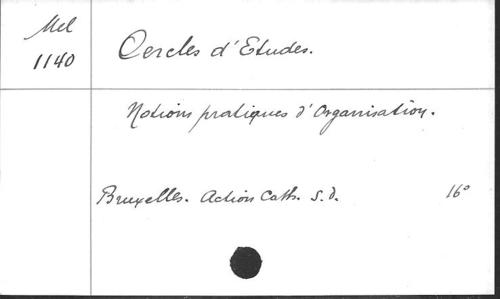 Mel
1140
Cercles d'Etudes.
Notions pratiques d'Organisation.
Bruxelles. Action Cath. s.d. 16°